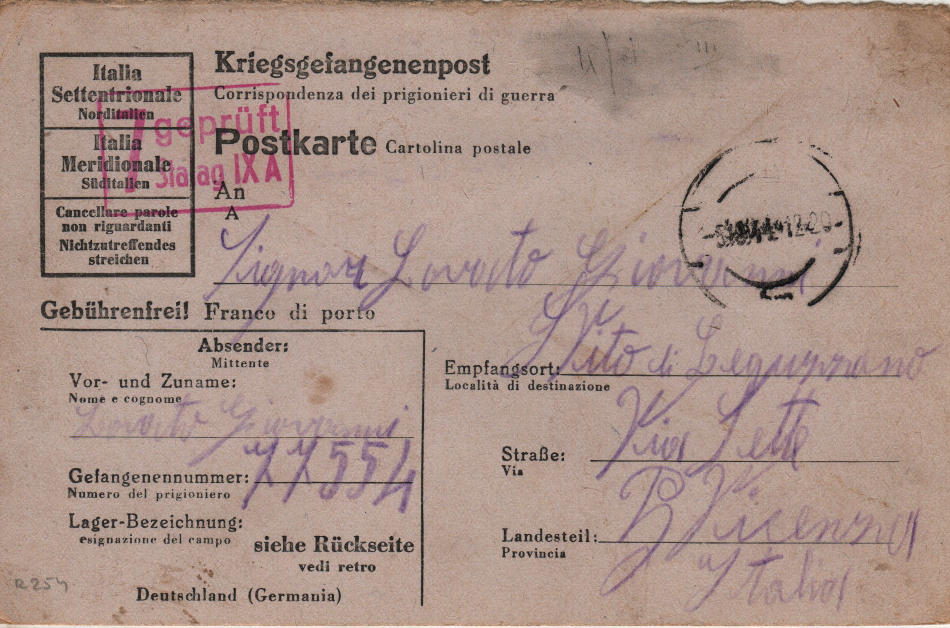 Kriegsgefangenenpost
Corrispondenza dei prigionieri di guerra
Postkarte Cartolina postale
Italia
Settentrionale
Norditalien
Italia
Meridionale
Süditalien
Cancellare parole
non riguardanti
Nichtzutreffendes
streichen
7 geprüft
Stalag IX A
An
A
Signor Lovato Giovanni
Gebührenfrei! Franco di porto
Absender:
Mittente
Vor- und Zuname:
Nome e cognome
Lovato Giovanni
Gefangenennummer: 77554
Numero del prigioniero
Lager-Bezeichnung:
esignazione del campo
siehe Rückseite
vedi retro
Deutschland (Germania)
Empfangsort: Vito di Leguzzano
Località di destinazione
Straße: Via Sette
Via
Landesteil: Vicenza
Provincia
Italia
R254